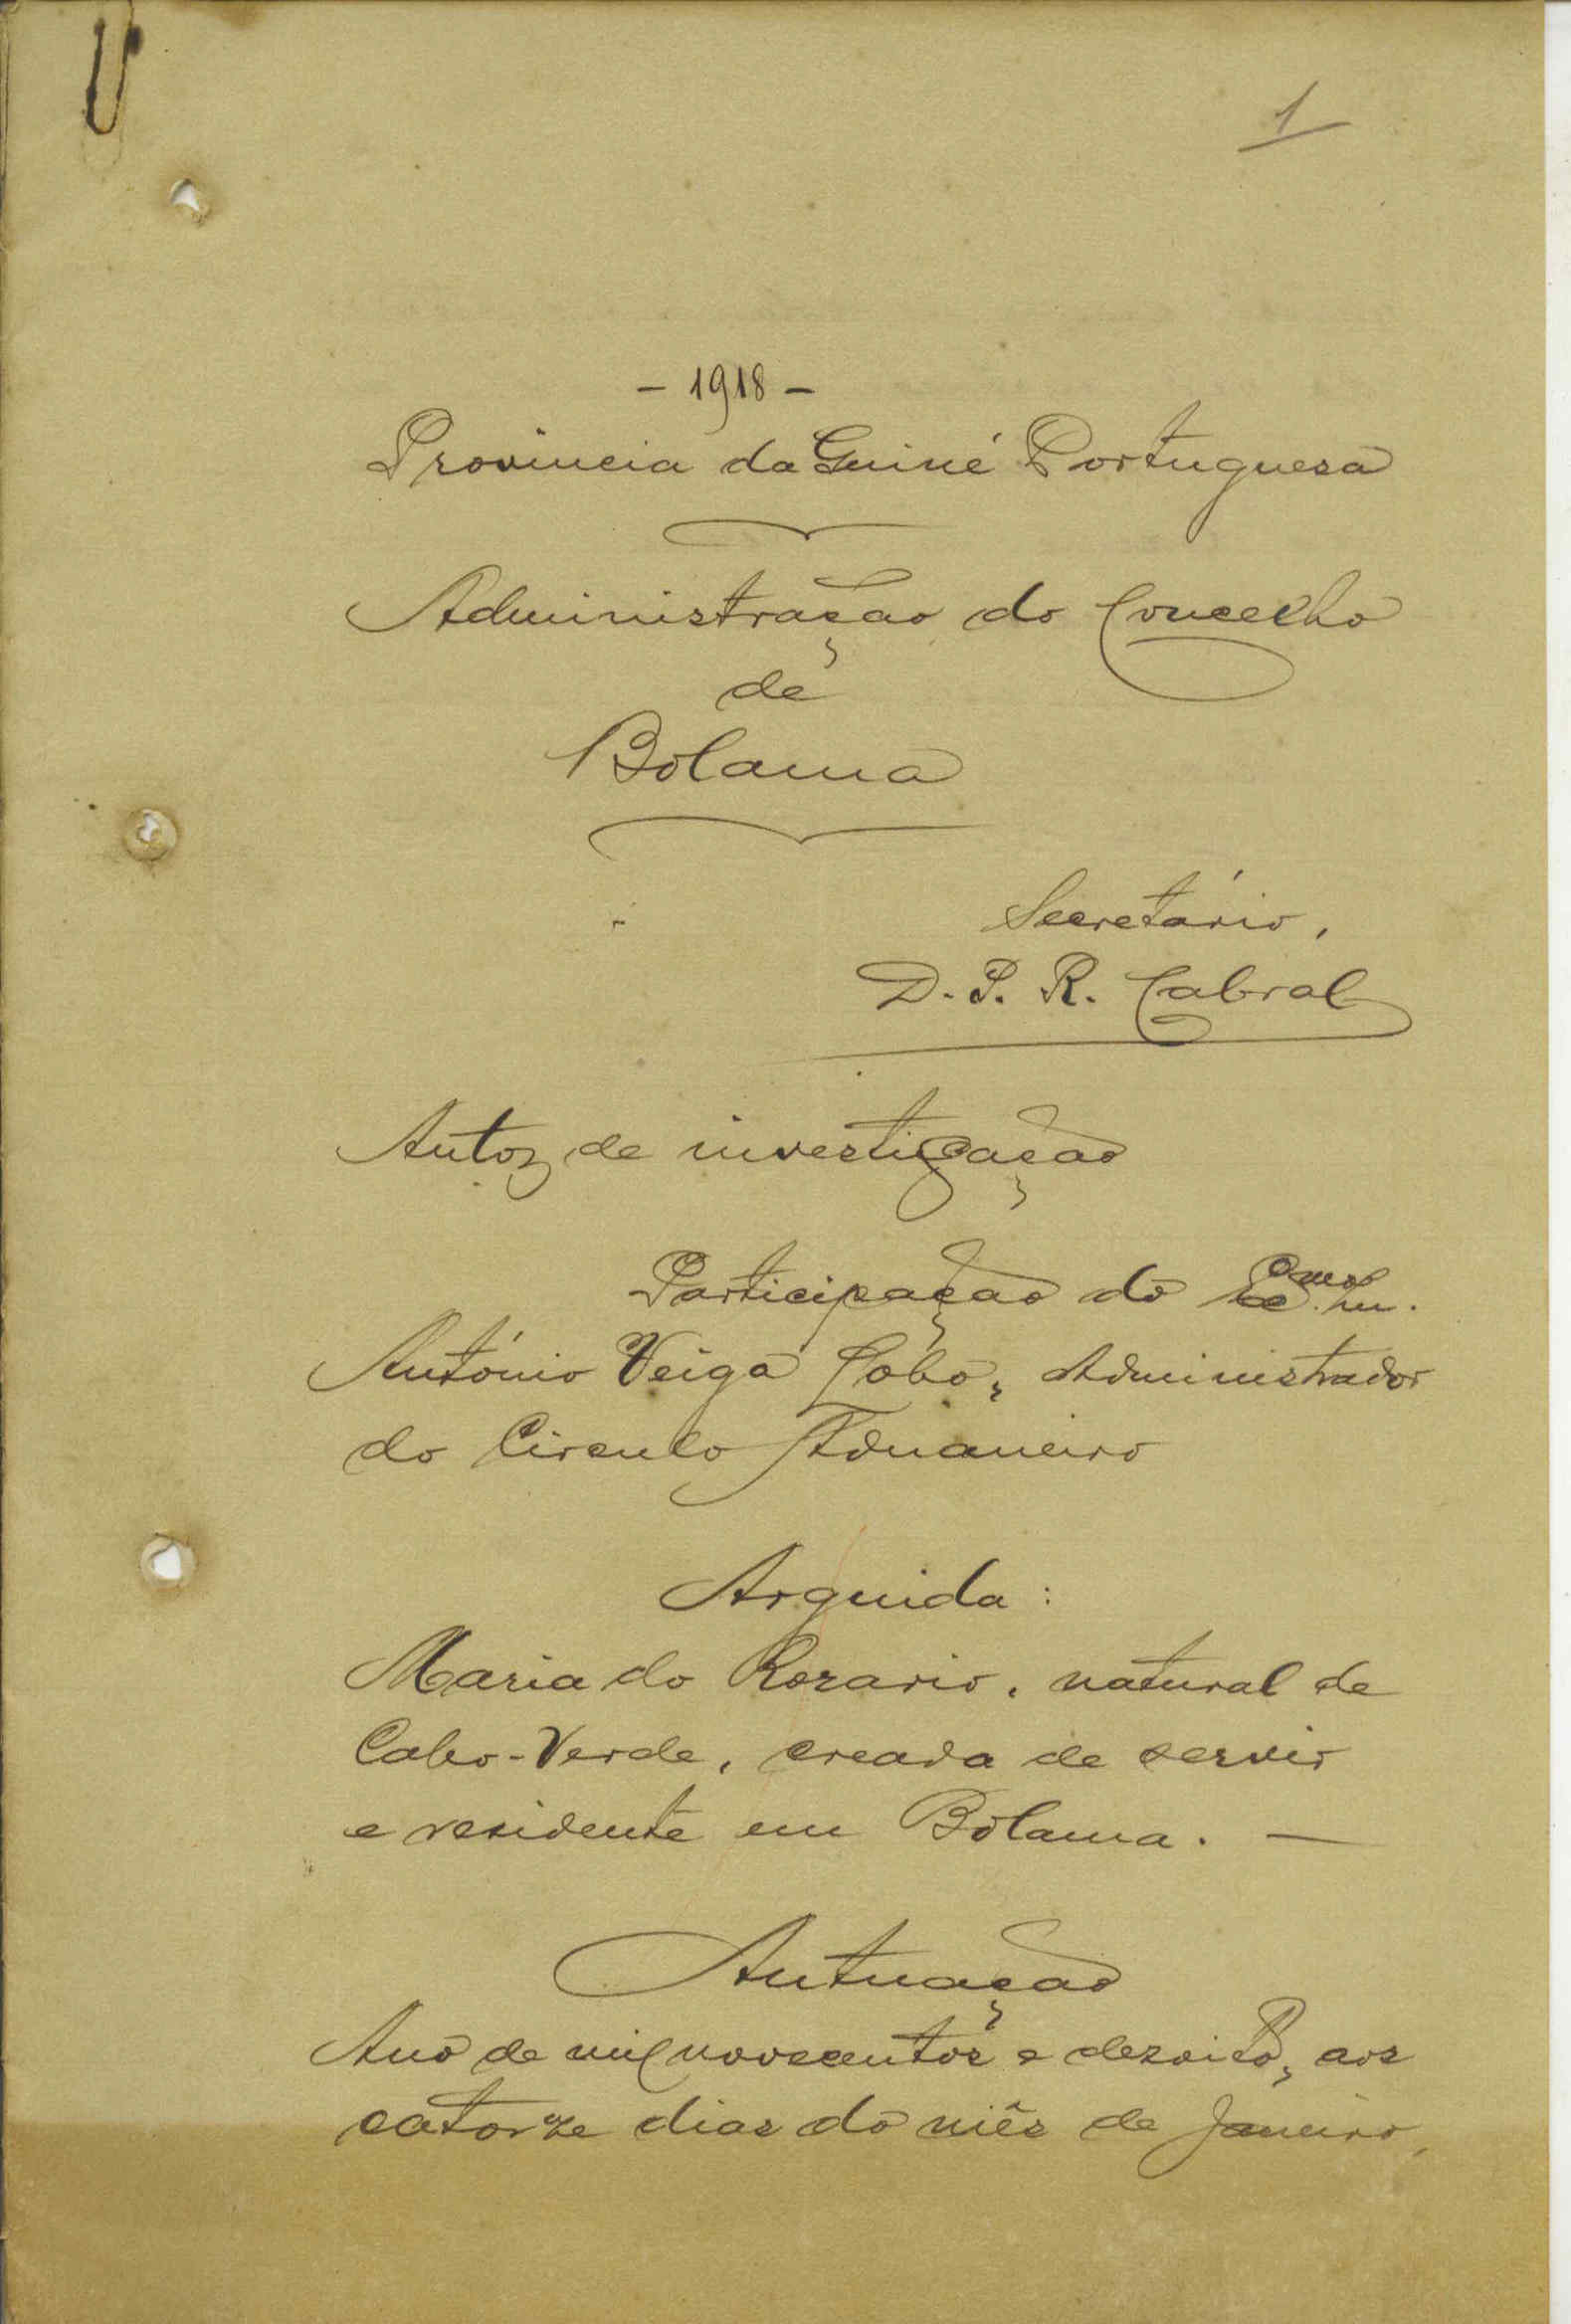 1
- 1918 -
Provincia da Guiné Portuguesa
Administração do Concelho
de
Bolama
Secretário,
D. P. R. Cabral
Autos de investigação
Participação do Ex.mo Sn.
António Veiga Lobo, Administrador
do Circulo Aduaneiro
Arguida:
Maria do Rozario, natural de
Cabo-Verde, creada de servir
e residente em Bolama. —
Autuação
Ano de mil novecentos e dezoito, aos
catorze dias do mês de Janeiro,